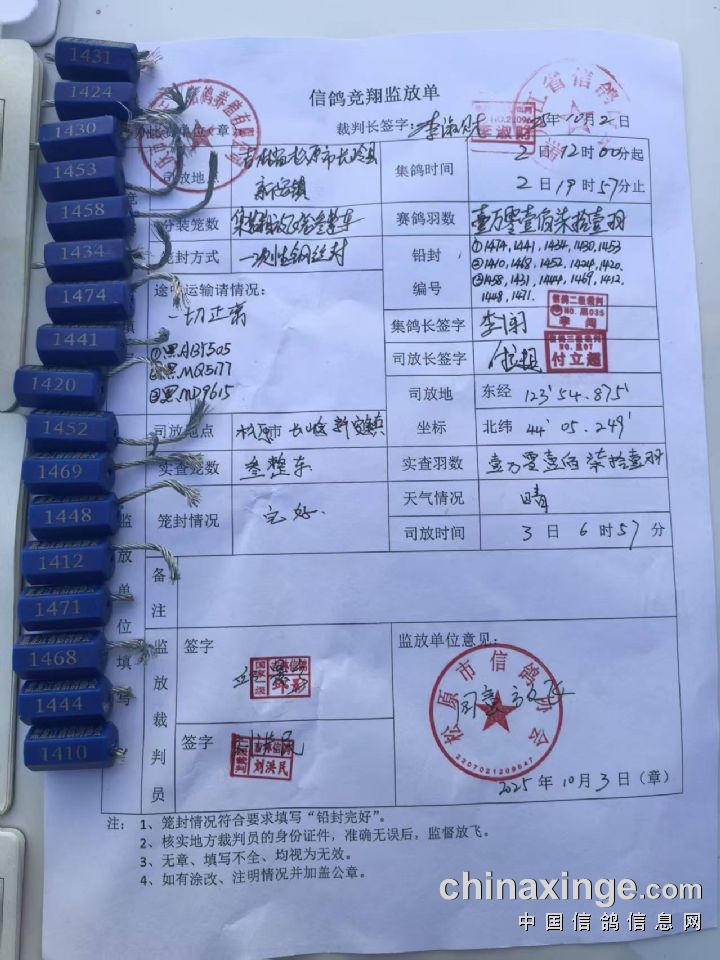 1431
1424
1430
1453
1458
1434
1474
1441
1420
1452
1469
1448
1412
1471
1468
1444
1410
信鸽竞翔监放单
裁判长签字: 李淑财
年10月2日
NO.21096
李淑财
省信鸽
鸽养殖有限公司
司放地点
吉林省松原市长岭县
新安镇
集鸽时间
2日12时00分起
2日19时57分止
分装笼数
赛鸽羽数
壹万零壹佰柒拾壹羽
笼封方式
一次性钢丝封
铅封
编号
①1474,1441,1434,1430,1453
②1410,1468,1452,1424,1420.
③1458,1431,1444,1469,1412.
1448,1471.
途中运输请情况:
一切正常
①黑ABT305
②黑MQ5177
③黑MD9615
集鸽长签字
李闯
信鸽二级裁判
NO.黑035
李闯
司放长签字
付立超
信鸽三级裁判
NO.黑07
付立超
司放地
坐标
东经 123°54.875'
北纬 44°05.249'
司放地点
松原市长岭新安镇
实查笼数
叁整车
实查羽数
壹万零壹佰柒拾壹羽
笼封情况
完好.
天气情况
晴
司放时间
3日6时57分
监放单位填写
备注
监放裁判员
签字
国家一级
签字
刘洪民
监放单位意见:
同意放飞
松原市信鸽协会
2207021209547
2025年10月3日(章)
注: 1、笼封情况符合要求填写“铅封完好”。
2、核实地方裁判员的身份证件，准确无误后，监督放飞。
3、无章、填写不全、均视为无效。
4、如有涂改、注明情况并加盖公章。
chinaxinge.com
中国信鸽信息网